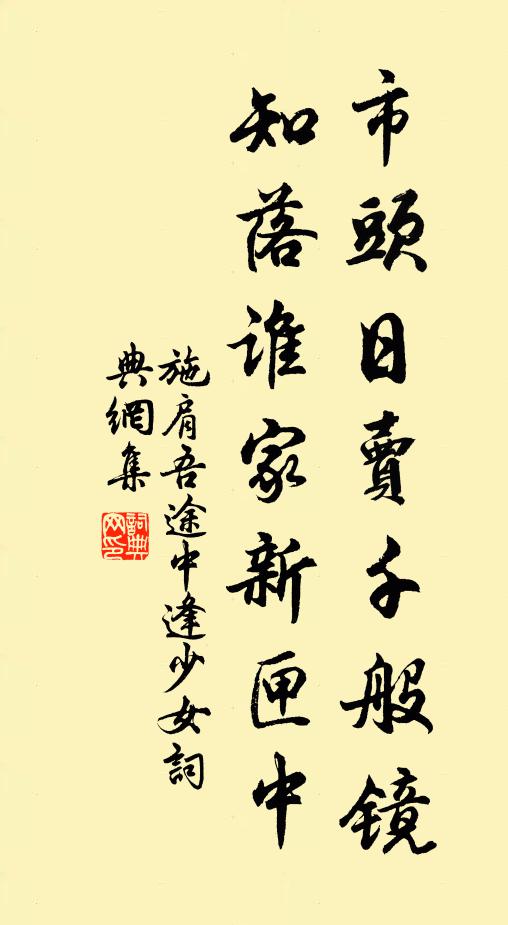 市頭日賣千般镜
知落誰家新匣中
施肩吾途中逢少女詞
典網集
詞典网印